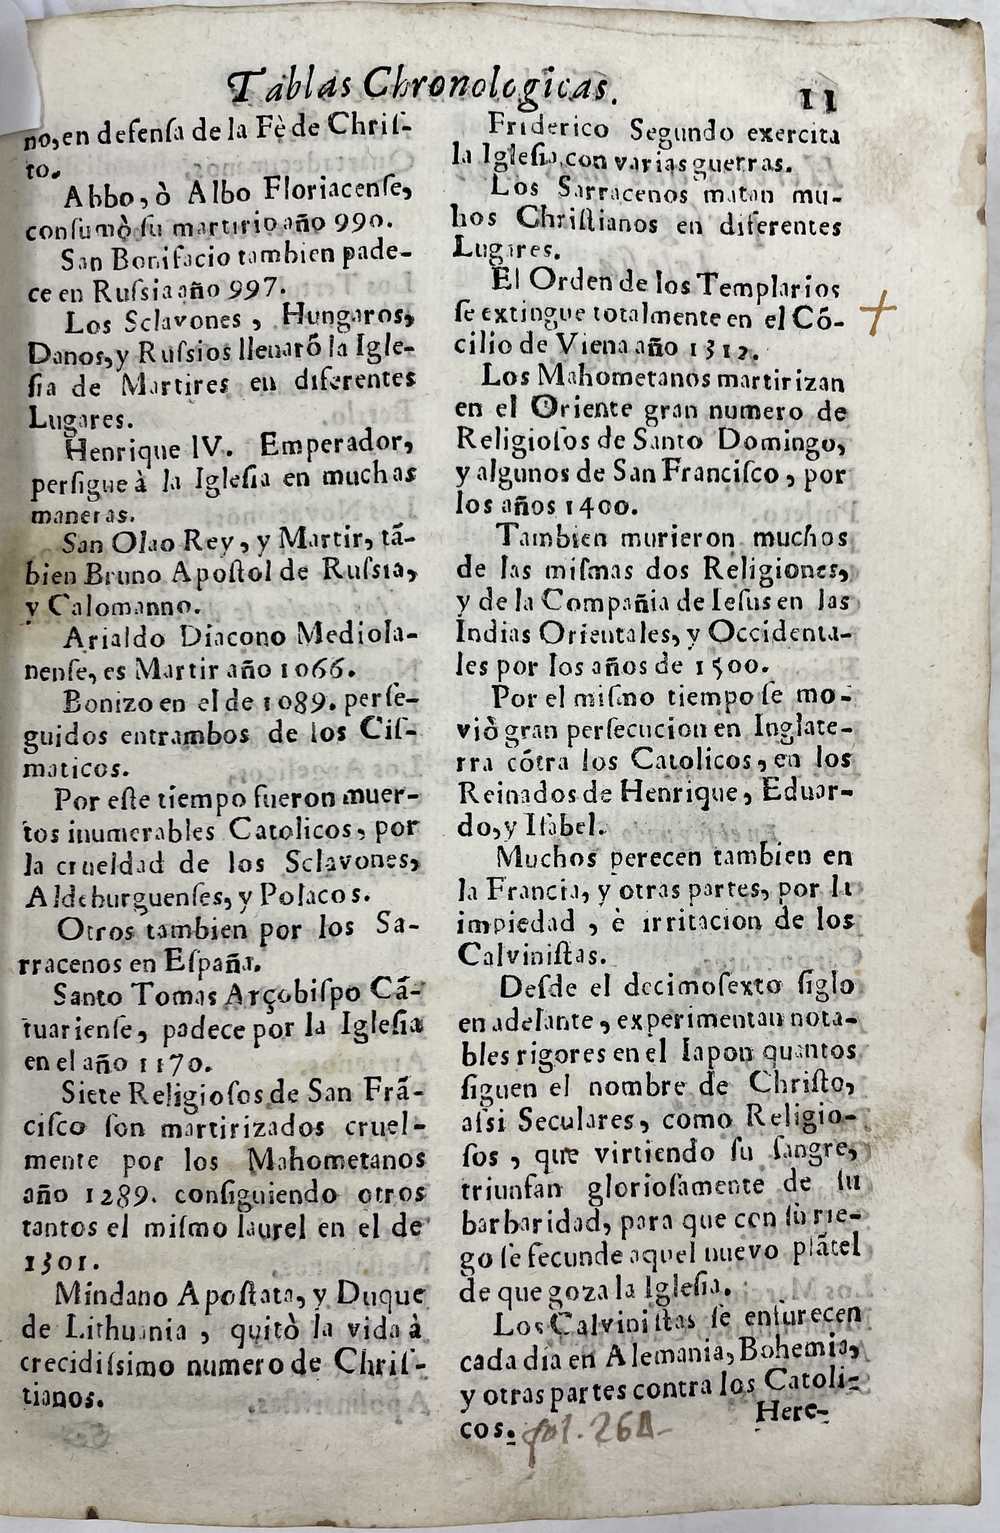 Tablas Chronologicas. 11
no, en defensa de la Fè de Chris-
to.
Abbo, ò Albo Floriacense,
consumò su martirio año 990.
San Bonifacio tambien pade-
ce en Russia año 997.
Los Sclavones, Hungaros,
Danos, y Russios llenarõ la Igle-
sia de Martires en diferentes
Lugares.
Henrique IV. Emperador,
persigue à la Iglesia en muchas
maneras.
San Olao Rey, y Martir, tã-
bien Bruno Apostol de Russia,
y Calomanno.
Arialdo Diacono Mediola-
nense, es Martir año 1066.
Bonizo en el de 1089. perse-
guidos entrambos de los Cis-
maticos.
Por este tiempo fueron muer-
tos inumerables Catolicos, por
la crueldad de los Sclavones,
Aldeburguenses, y Polacos.
Otros tambien por los Sa-
rracenos en España.
Santo Tomas Arçobispo Cã-
tuariense, padece por la Iglesia
en el año 1170.
Siete Religiosos de San Frã-
cisco son martirizados cruel-
mente por los Mahometanos
año 1289. consiguiendo otros
tantos el mismo laurel en el de
1301.
Mindano Apostata, y Duque
de Lithuania, quitò la vida à
crecidissimo numero de Chris-
tianos.
Friderico Segundo exercita
la Iglesia, con varias guerras.
Los Sarracenos matan mu-
hos Christianos en diferentes
Lugares.
El Orden de los Templarios
se extingue totalmente en el Cõ-
cilio de Viena año 1312.
Los Mahometanos martirizan
en el Oriente gran numero de
Religiosos de Santo Domingo,
y algunos de San Francisco, por
los años 1400.
Tambien murieron muchos
de las mismas dos Religiones,
y de la Compañia de Iesus en las
Indias Orientales, y Occidenta-
les por los años de 1500.
Por el mismo tiempo se mo-
viò gran persecucion en Inglate-
rra cõtra los Catolicos, en los
Reinados de Henrique, Eduar-
do, y Isabel.
Muchos perecen tambien en
la Francia, y otras partes, por la
impiedad, è irritacion de los
Calvinistas.
Desde el decimosexto siglo
en adelante, experimentan nota-
bles rigores en el Iapon quantos
siguen el nombre de Christo,
assi Seculares, como Religio-
sos, que virtiendo su sangre,
triunfan gloriosamente de su
barbaridad, para que con su rie-
go se fecunde aquel nuevo plãtel
de que goza la Iglesia.
Los Calvinistas se enfurecen
cada dia en Alemania, Bohemia,
y otras partes contra los Catoli-
cos. fol. 264
Here-